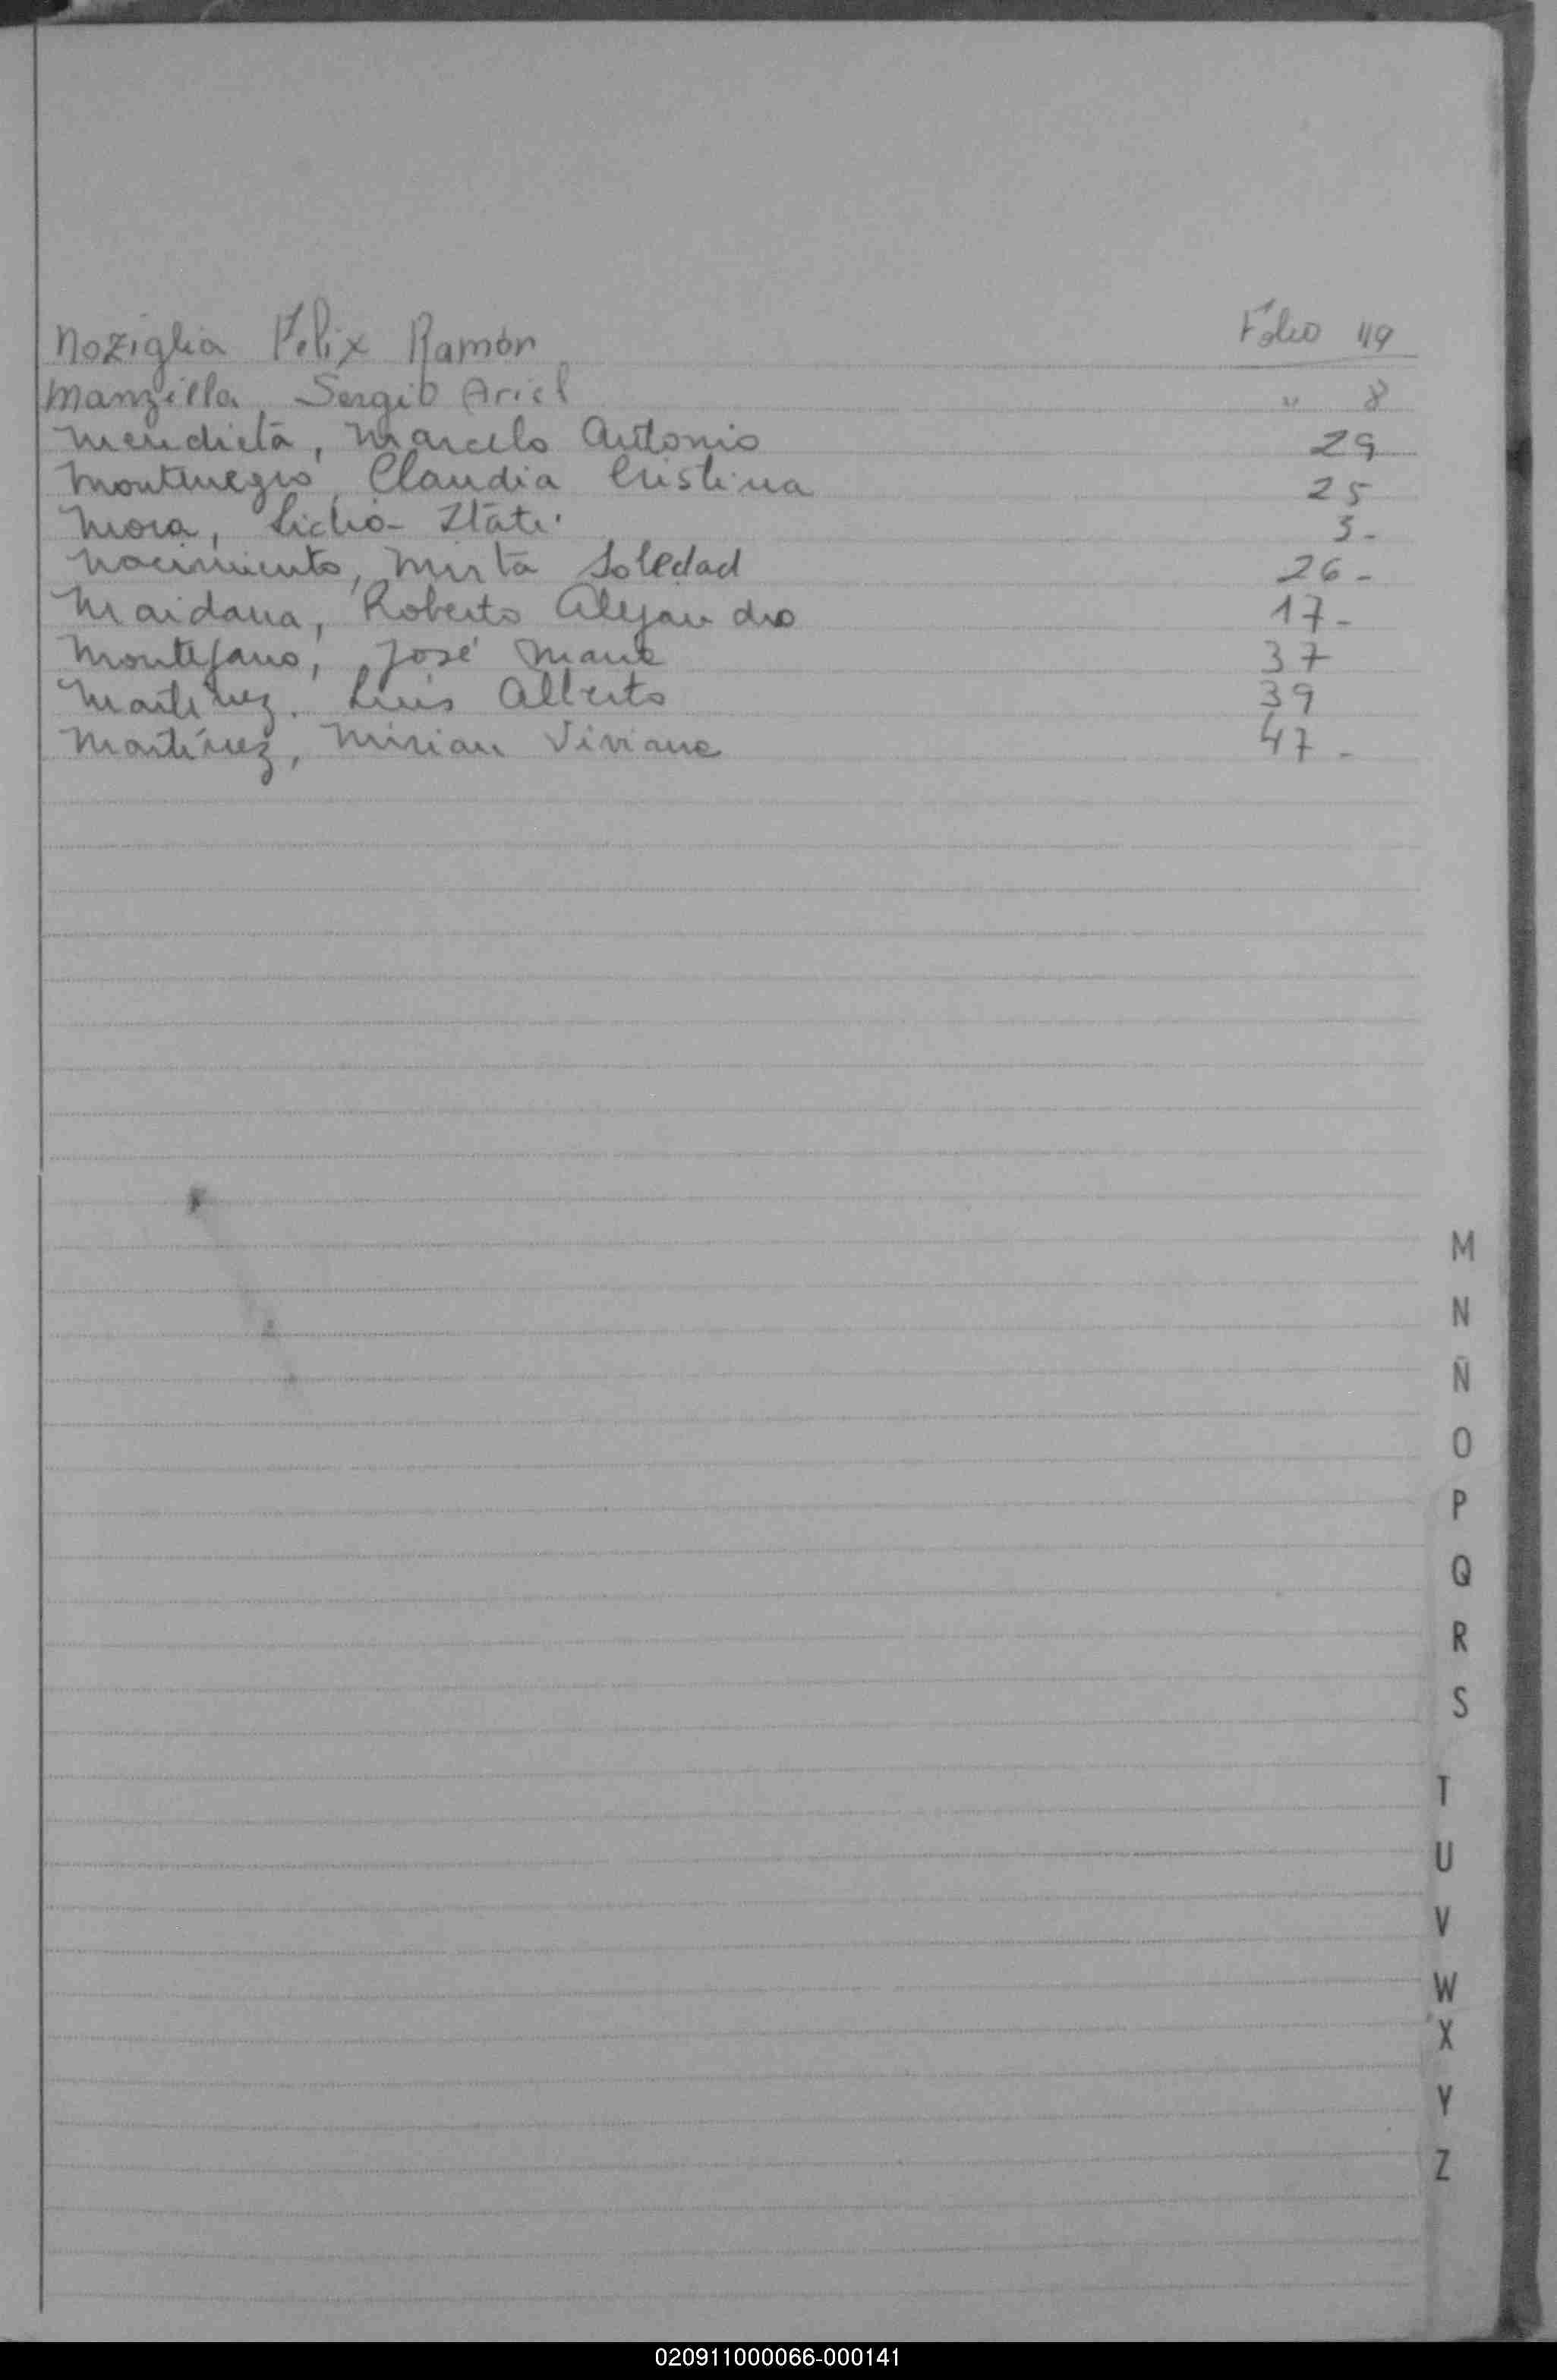 Noziglia Felix Ramón Folio 49
Manzilla, Sergio Ariel " 8
Mendieta, Marcelo Antonio 29
Montenegro, Claudia Cristina 25
Mora, 3-
Nacimiento, Mirta Soledad 26-
Maidana, Roberto Alejandro 17-
José Maria 37
Martinez. Luis Alberto 39
Martínez, Mirian Viviana 47-
M
N
Ñ
O
P
Q
R
S
T
U
V
W
X
Y
Z
020911000066-000141